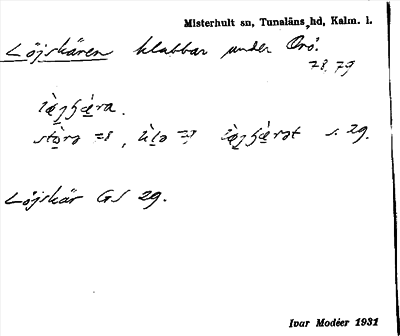 Misterhult sn, Tunaläns hd, Kalm. l.
Löjskären klabbar under Örö.
78, 79
stò̱rə 78, ù̱lə 79 s. 29.
Löjskär GS 29.
Ivar Modéer 1931